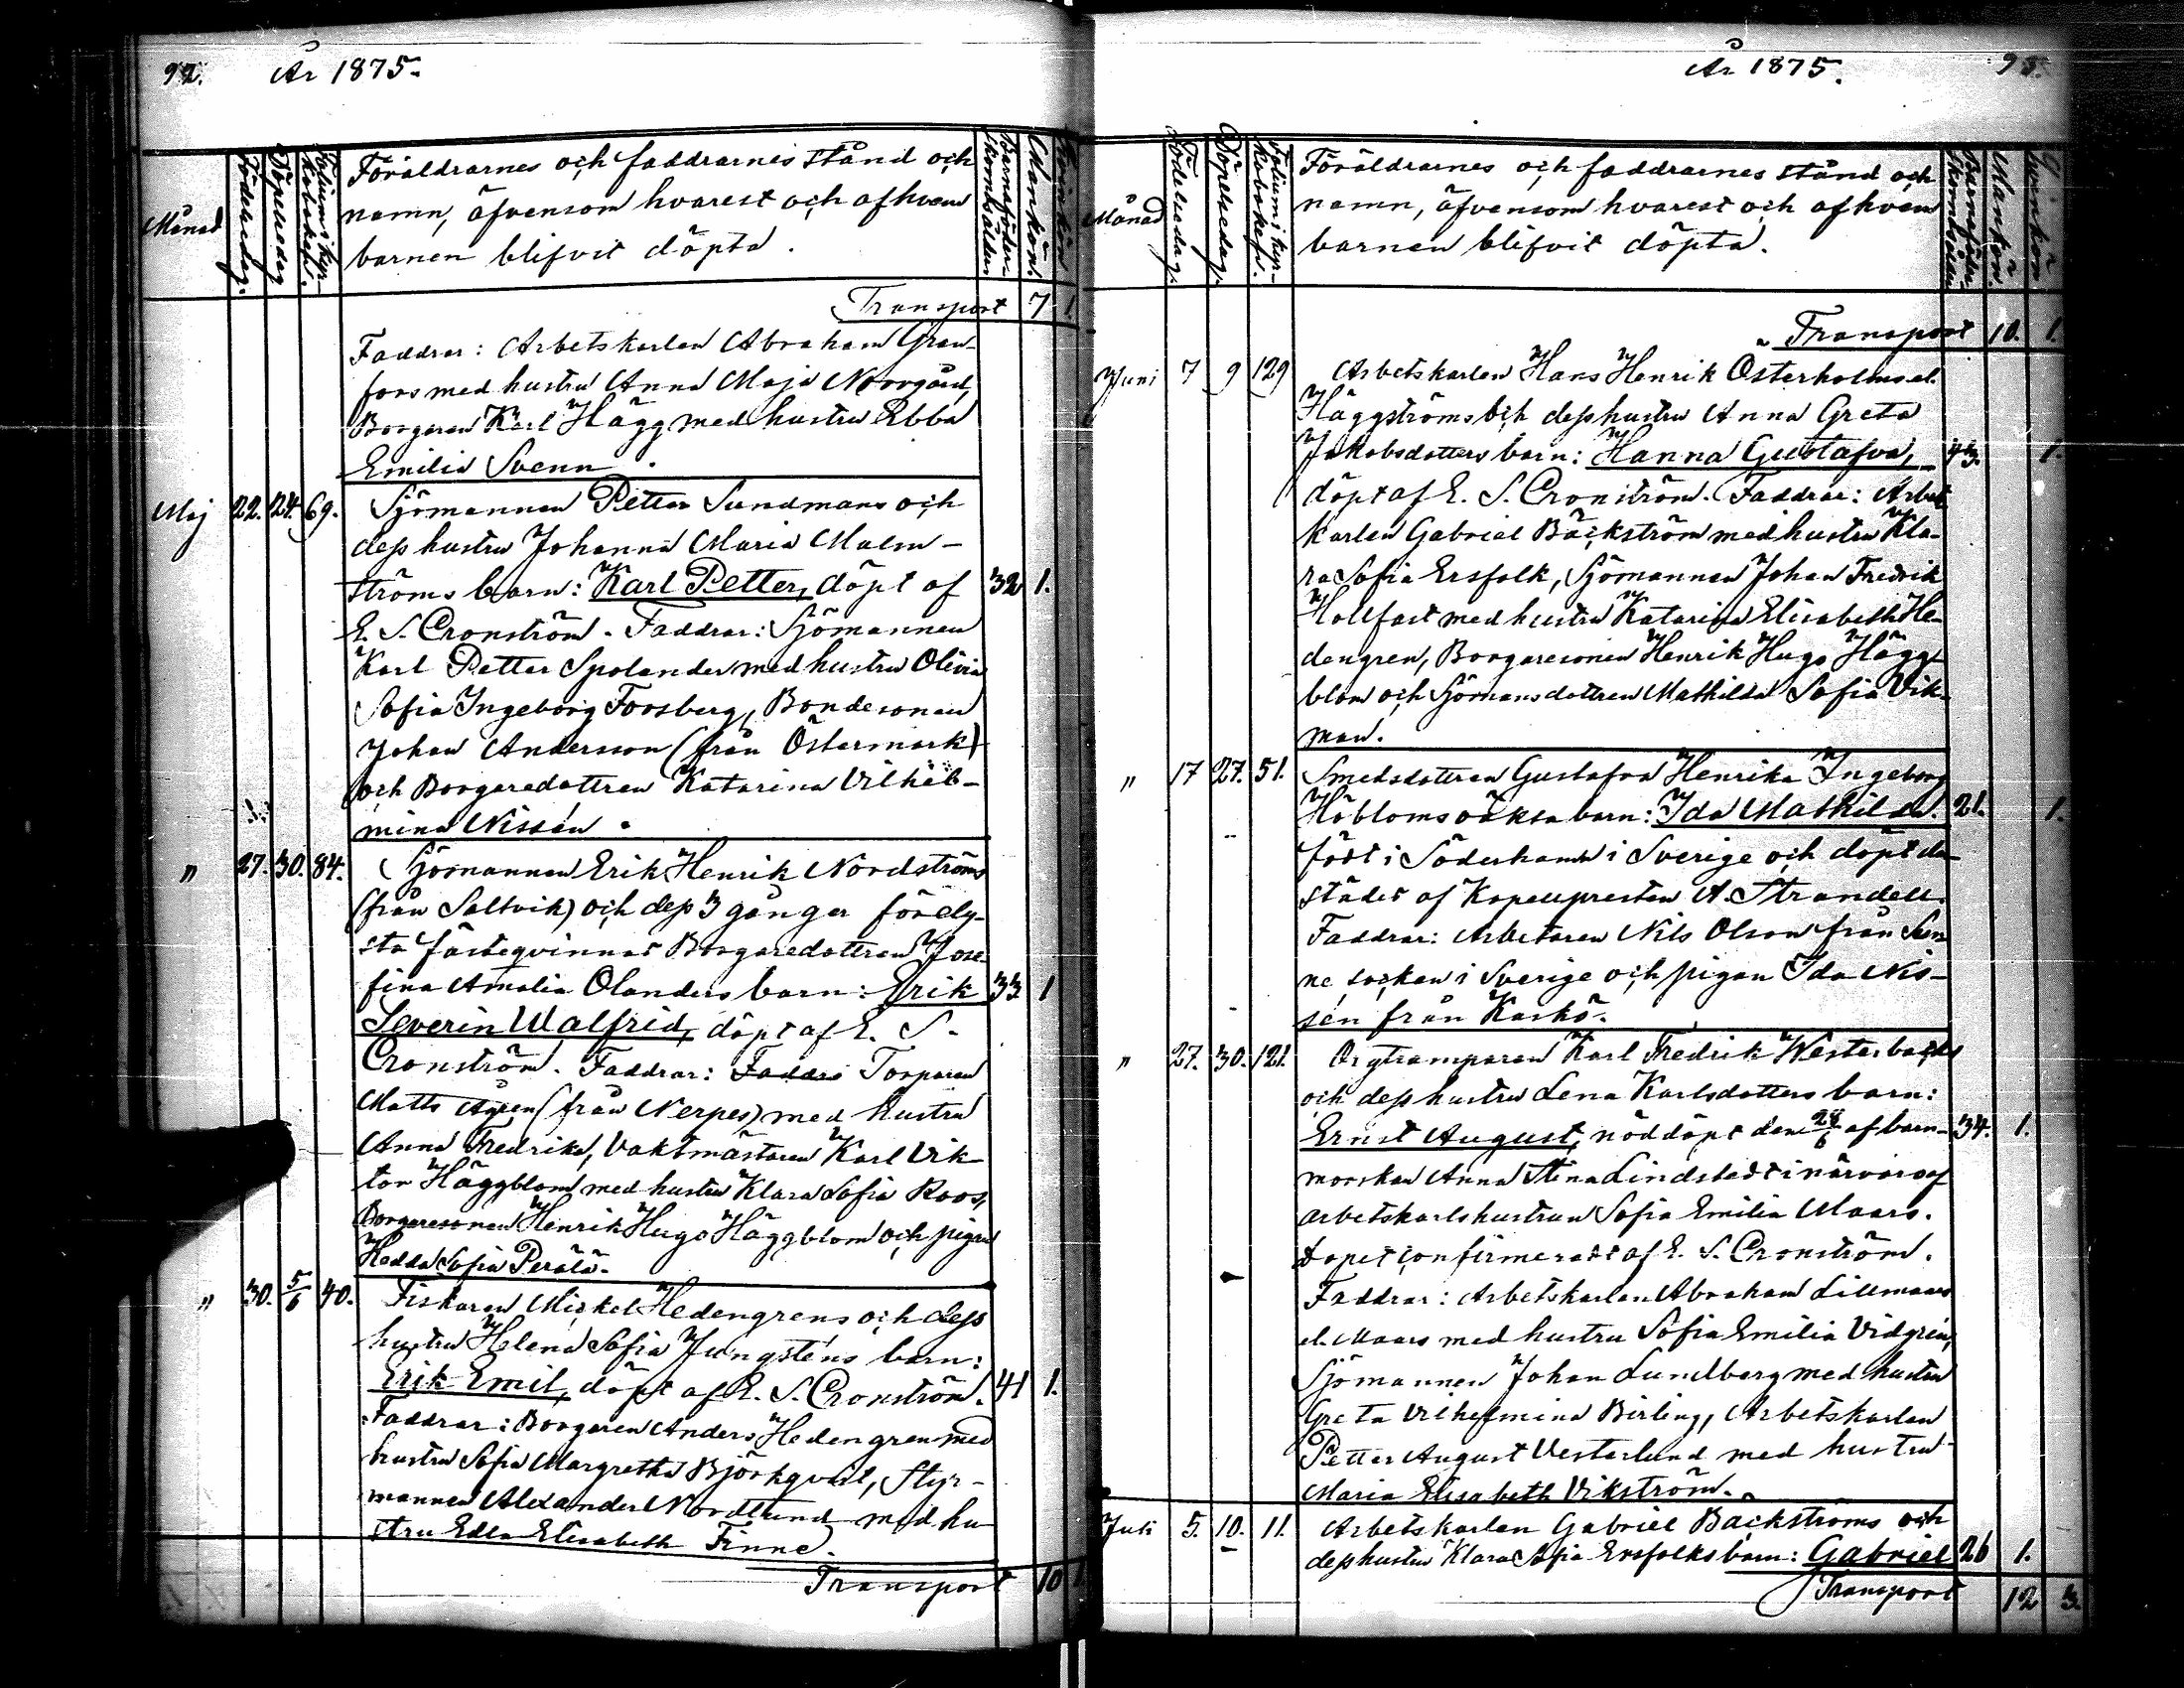 92. År 1875.
Månad
Födelsedag.
Döpelsedag
Folium i kyr-
koboken.
Föräldrarnes och faddrarnes stånd och
namn, äfvensom hvarest och af hvem
barnen blifvit döpta.
Barnaföder-
skornas ålder
Mankön.
Qvinkön
Transport 7 1
Faddrar: Arbetskarlen Abraham Gran-
fors med hustru Anna Maja Norrgård,
Borgaren Karl Hägg med hustru Ebba
Emilia Svenn.
Maj 22. 24. 69. Sjömannen Petter Sundmans och
dess hustru Johanna Maria Malm-
ströms barn: Karl Petter, döpt af 32 1.
E. S. Cronström. Faddrar: Sjömannen
Karl Petter Spolander med hustru Olivia
Sofia Ingeborg Forsberg, Bondesonen
Johan Andersson (från Östermark)
och Borgaredottren Katarina Vilhel-
mina Nissén.
" 27. 30. 84. Sjömannen Erik Henrik Nordströms
(från Saltvik) och dess 3 gånger förely-
sta fästeqvinnas Borgaredottren Jose-
fina Amalia Olanders barn: Erik 33 1
Severin Walfrid, döpt af E. S.
Cronström. Faddrar: Faddra Torparen
Matts Ågren (från Nerpes) med hustru
Anna Fredrika, Vaktmästaren Karl Vik-
tor Häggblom med hustru Klara Sofia Roos,
Borgaresonen Henrik Hugo Häggblom och pigan
Hedda Sofia Perälä.
" 30. 5/6 40. Fiskaren Mickel Hedengrens och dess
hustru Helena Sofia Jungsténs barn:
Erik Emil, döpt af E. S. Cronström. 41 1.
Faddrar: Borgaren Anders Hedengren med
hustru Sofia Margretha Björkqvist, Styr-
mannen Alexander Nordlund med hu
stru Edla Elisabeth Finne.
Transport 10 1
År 1875. 93.
Månad
Födelsedag.
Döpelsedag.
Folium i kyr-
koboken.
Föräldrarnes och faddrarnes stånd och
namn, äfvensom hvarest och af hvem
barnen blifvit döpta.
Barnaföder-
skornas ålder
Mankön.
Qvinkön
Transport 10. 1.
Juni 7 9 129 Arbetskarlen Hans Henrik Österholms el.
Häggströms och dess hustru Anna Greta
Jakobsdotters barn: Hanna Gustafva, 43. 1.
döpt af E. S. Cronström. Faddrar: Arbets
karlen Gabriel Bäckström med hustru Kla-
ra Sofia Ersfolk, Sjömannen Johan Fredrik
Hollfast med hustru Katarina Elisabeth He-
dengren, Borgaresonen Henrik Hugo Hägg-
blom och Sjömansdottren Mathilda Sofia Vik-
man.
" 17 27. 51. Smedsdottren Gustafva Henrika Ingeborg
Höbloms oäkta barn: Ida Mathilda. 21. 1.
född i Söderhamn i Sverige och döpt der-
städes af Kapellpresten A. Strandell.
Faddrar: Arbetaren Nils Olson från
ne socken i Sverige och pigan Ida Nis-
sén från Kaskö.
" 27. 30. 121. Orgtramparen Karl Fredrik Westerbacks
och dess hustru Lena Karlsdotters barn:
Ernst August, nöddöpt den 28/6 af barn- 34. 1.
morskan Anna Stina Lindstedt i närvaro af
arbetskarlshustrun Sofia Emilia Maars.
dopet confirmeradt af E. S. Cronström.
Faddrar: Arbetskarlen Abraham Lillmaars
el. Maars med hustru Sofia Emilia Vidgrén,
Sjömannen Johan Lundberg med hustru
Greta Vilhelmina Birling, Arbetskarlen
Petter August Vesterlund med hustru
Maria Elisabeth Vikström.
Juli 5. 10. 11. Arbetskarlen Gabriel Bäckströms och
dess hustru Klara Sofia Ersfolks barn: Gabriel 26 1.
Transport 12 3.